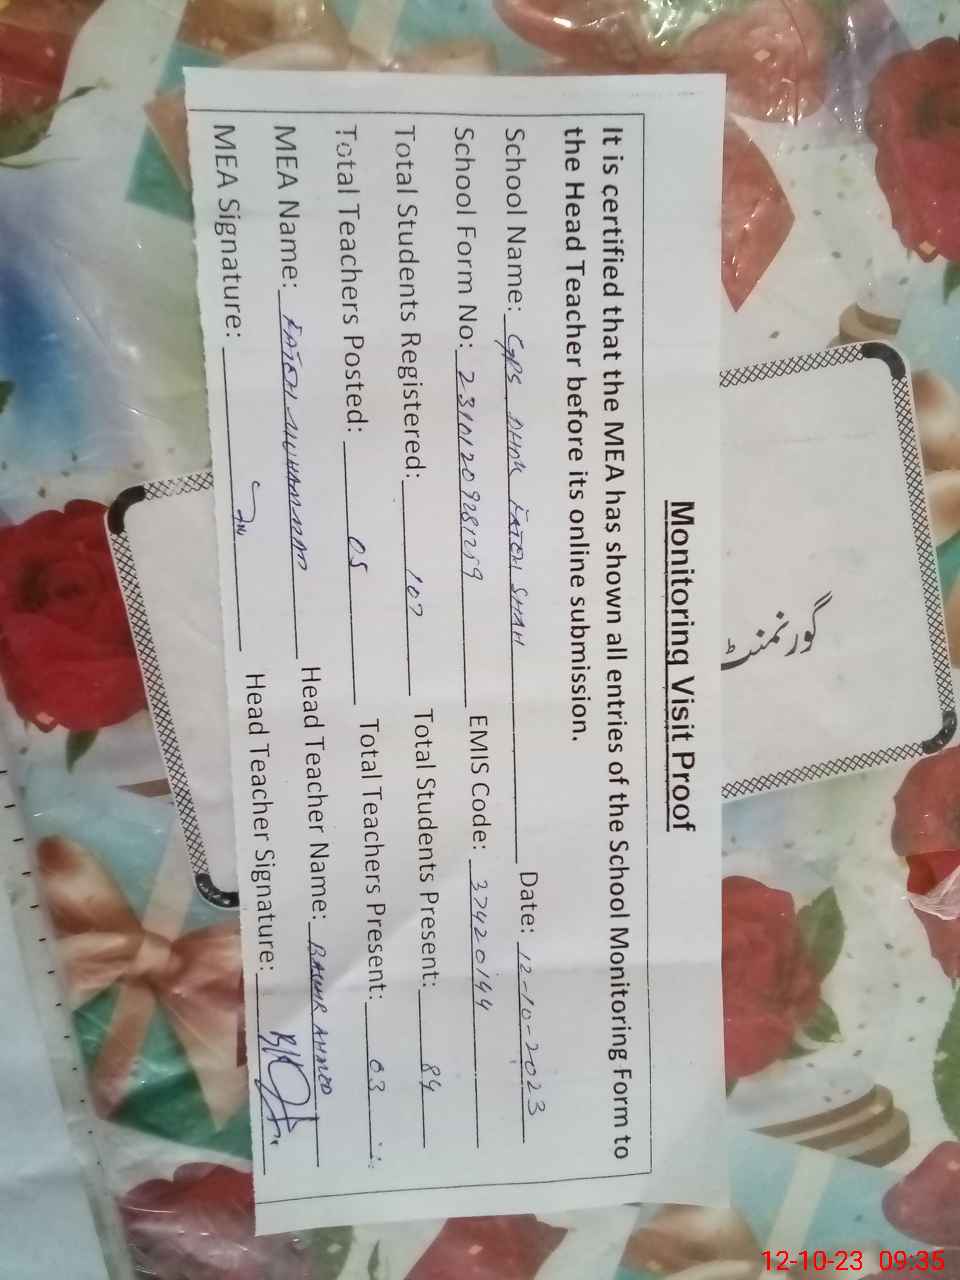 Monitoring Visit Proof
It is certified that the MEA has shown all entries of the School Monitoring Form to
the Head Teacher before its online submission.
School Name: GPS DHOK FATEH SHAH Date: 12-10-2023
School Form No: EMIS Code: 37420144
Total Students Registered: 107 Total Students Present: 84
Total Teachers Posted: 05 Total Teachers Present: 03
MEA Name: FATEH MUHAMMAD Head Teacher Name: AHMED
MEA Signature: Head Teacher Signature:
گورنمنٹ
12-10-23 09:35